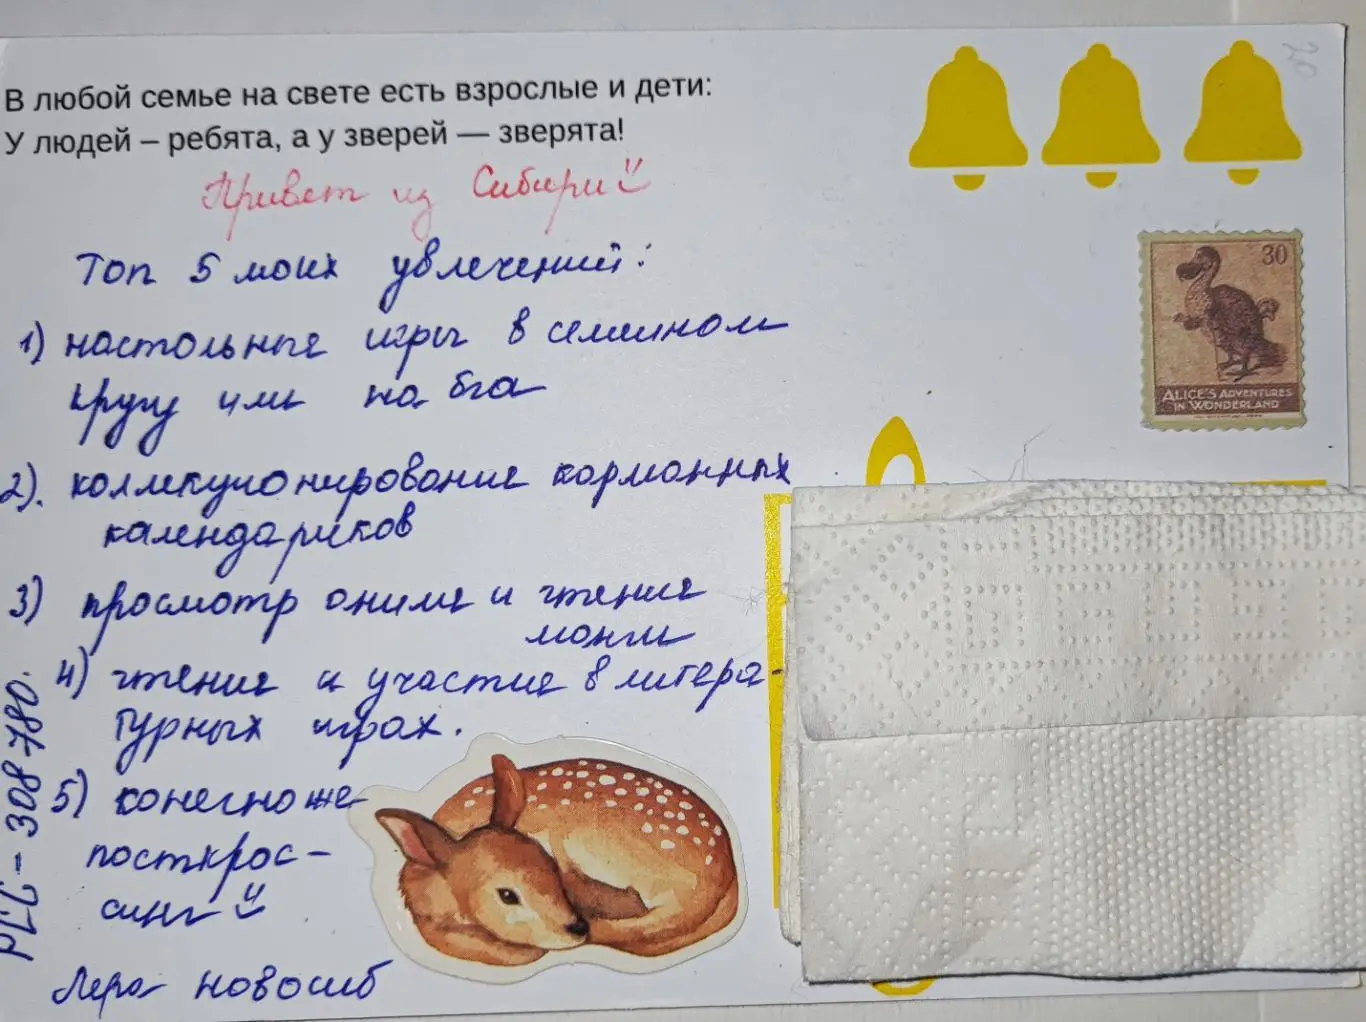 В любой семье на свете есть взрослые и дети:
У людей – ребята, а у зверей — зверята!
Привет из Сибири
Топ 5 моих увлечений:
1) настольные игры в семейном
кругу или на бга
2). коллекционирование карманных
календариков
3) просмотр аниме и чтение
манги
4) чтение и участие в литера-
турных играх.
5) конечно же
посткрос-
синг
Лера Новосиб
РСС-308780.
30
ALICE'S ADVENTURES
IN WONDERLAND